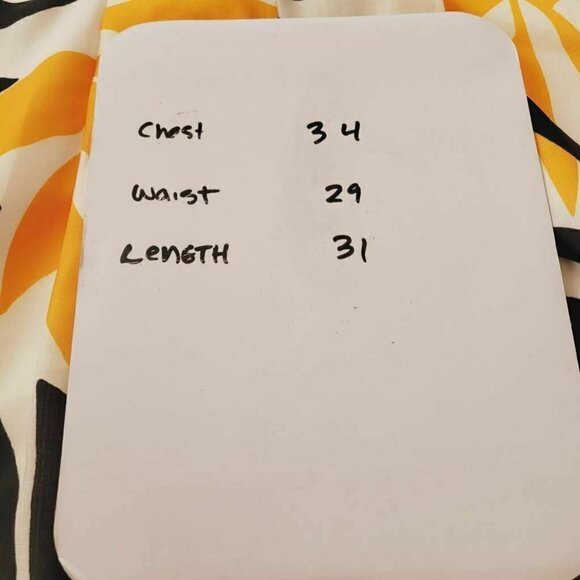 Chest 34
Waist 29
LeNGTH 31